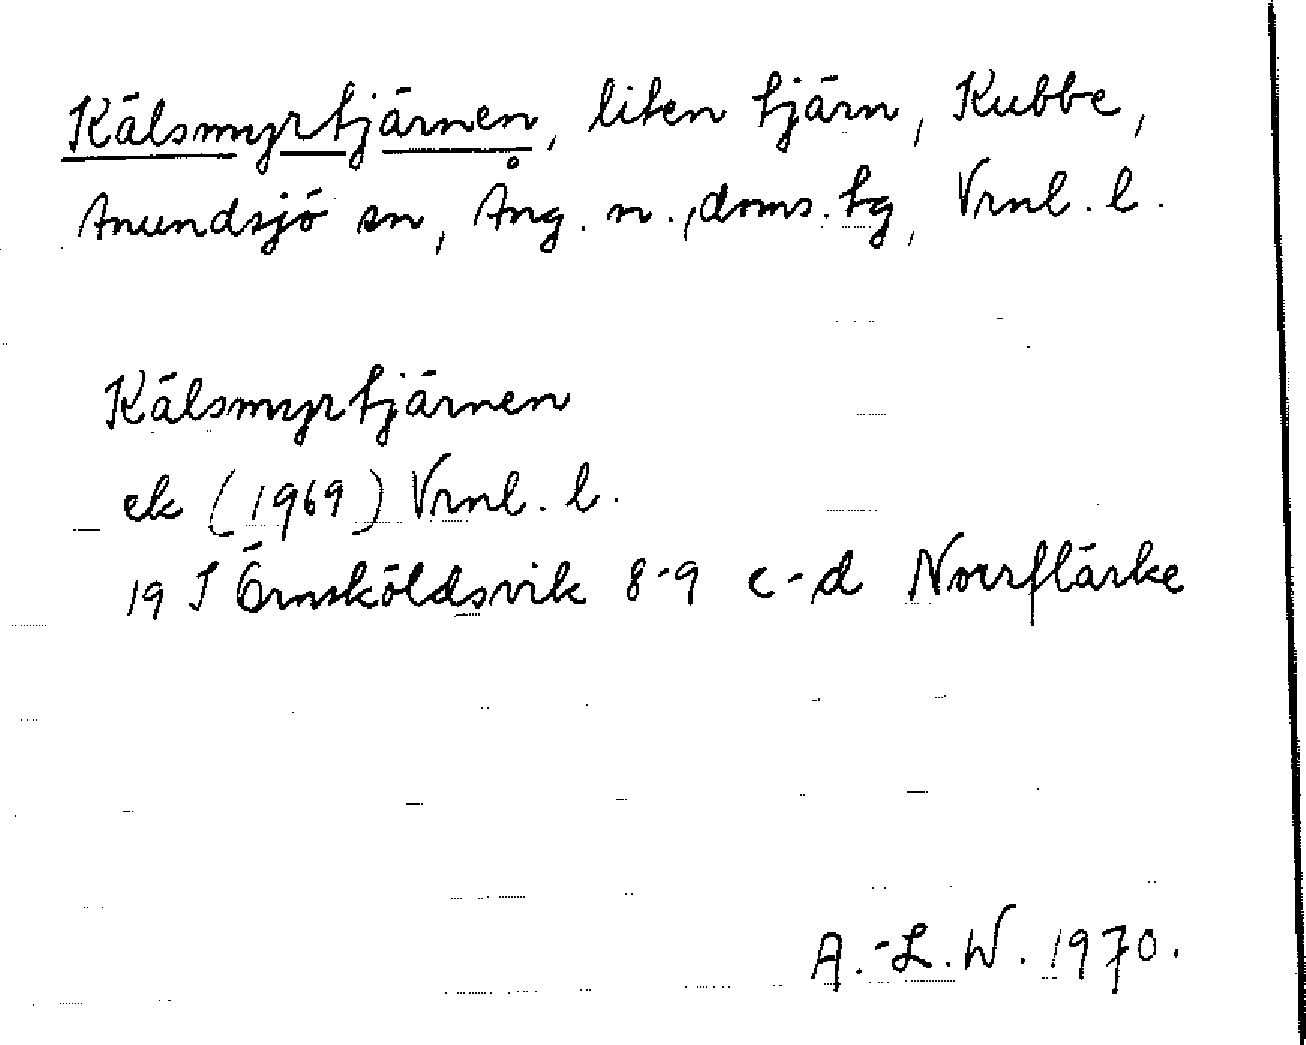 Kälsmyrtjärnen, liten tjärn, Kubbe,
Anundsjö sn, Ång. n., doms. tg, Vrnl. l.
Kälsmyrtjärnen
ek (1969) Vrnl. l.
19 J Örnsköldsvik 8-9 c-d Norrflärke
A.-L.W. 1970.